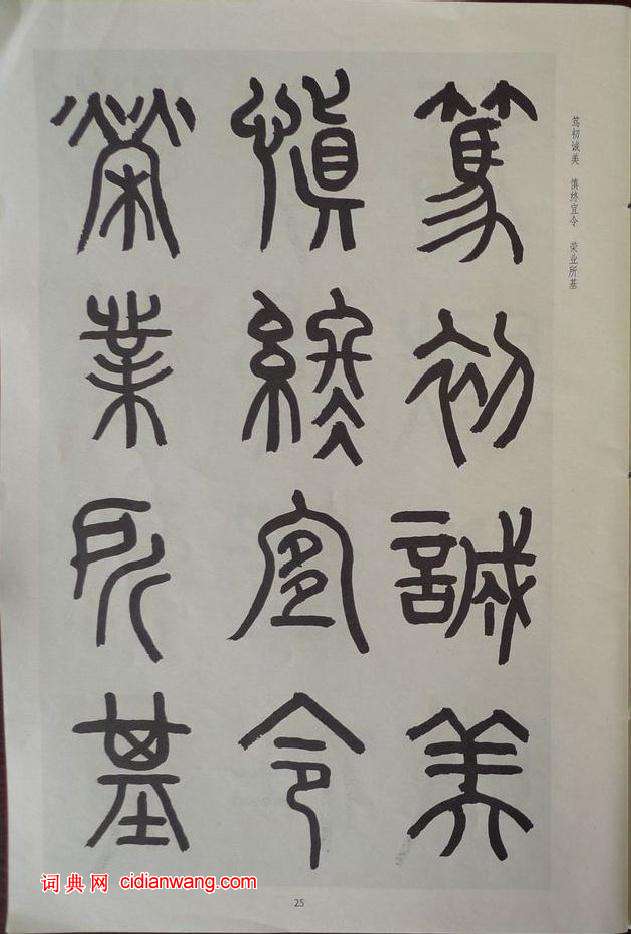 篤初誠美
慎終宜令
榮業所基
笃初诚美 慎终宜令 荣业所基
词典网 cidianwang.com
25